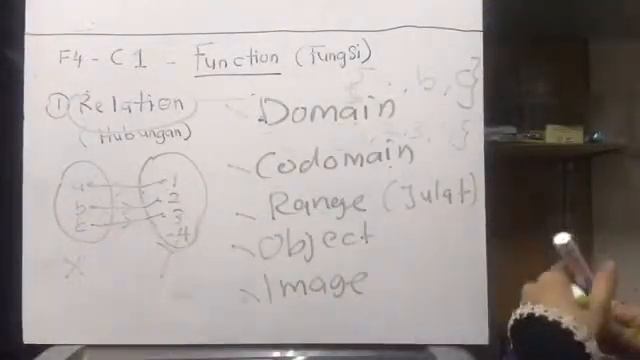 F4 - C1 - Function (Fungsi)
① Relation
(Hubungan)
Domain
Codomain
Range (Julat)
Object
Image
a
b
c
1
2
3
4
X
Y